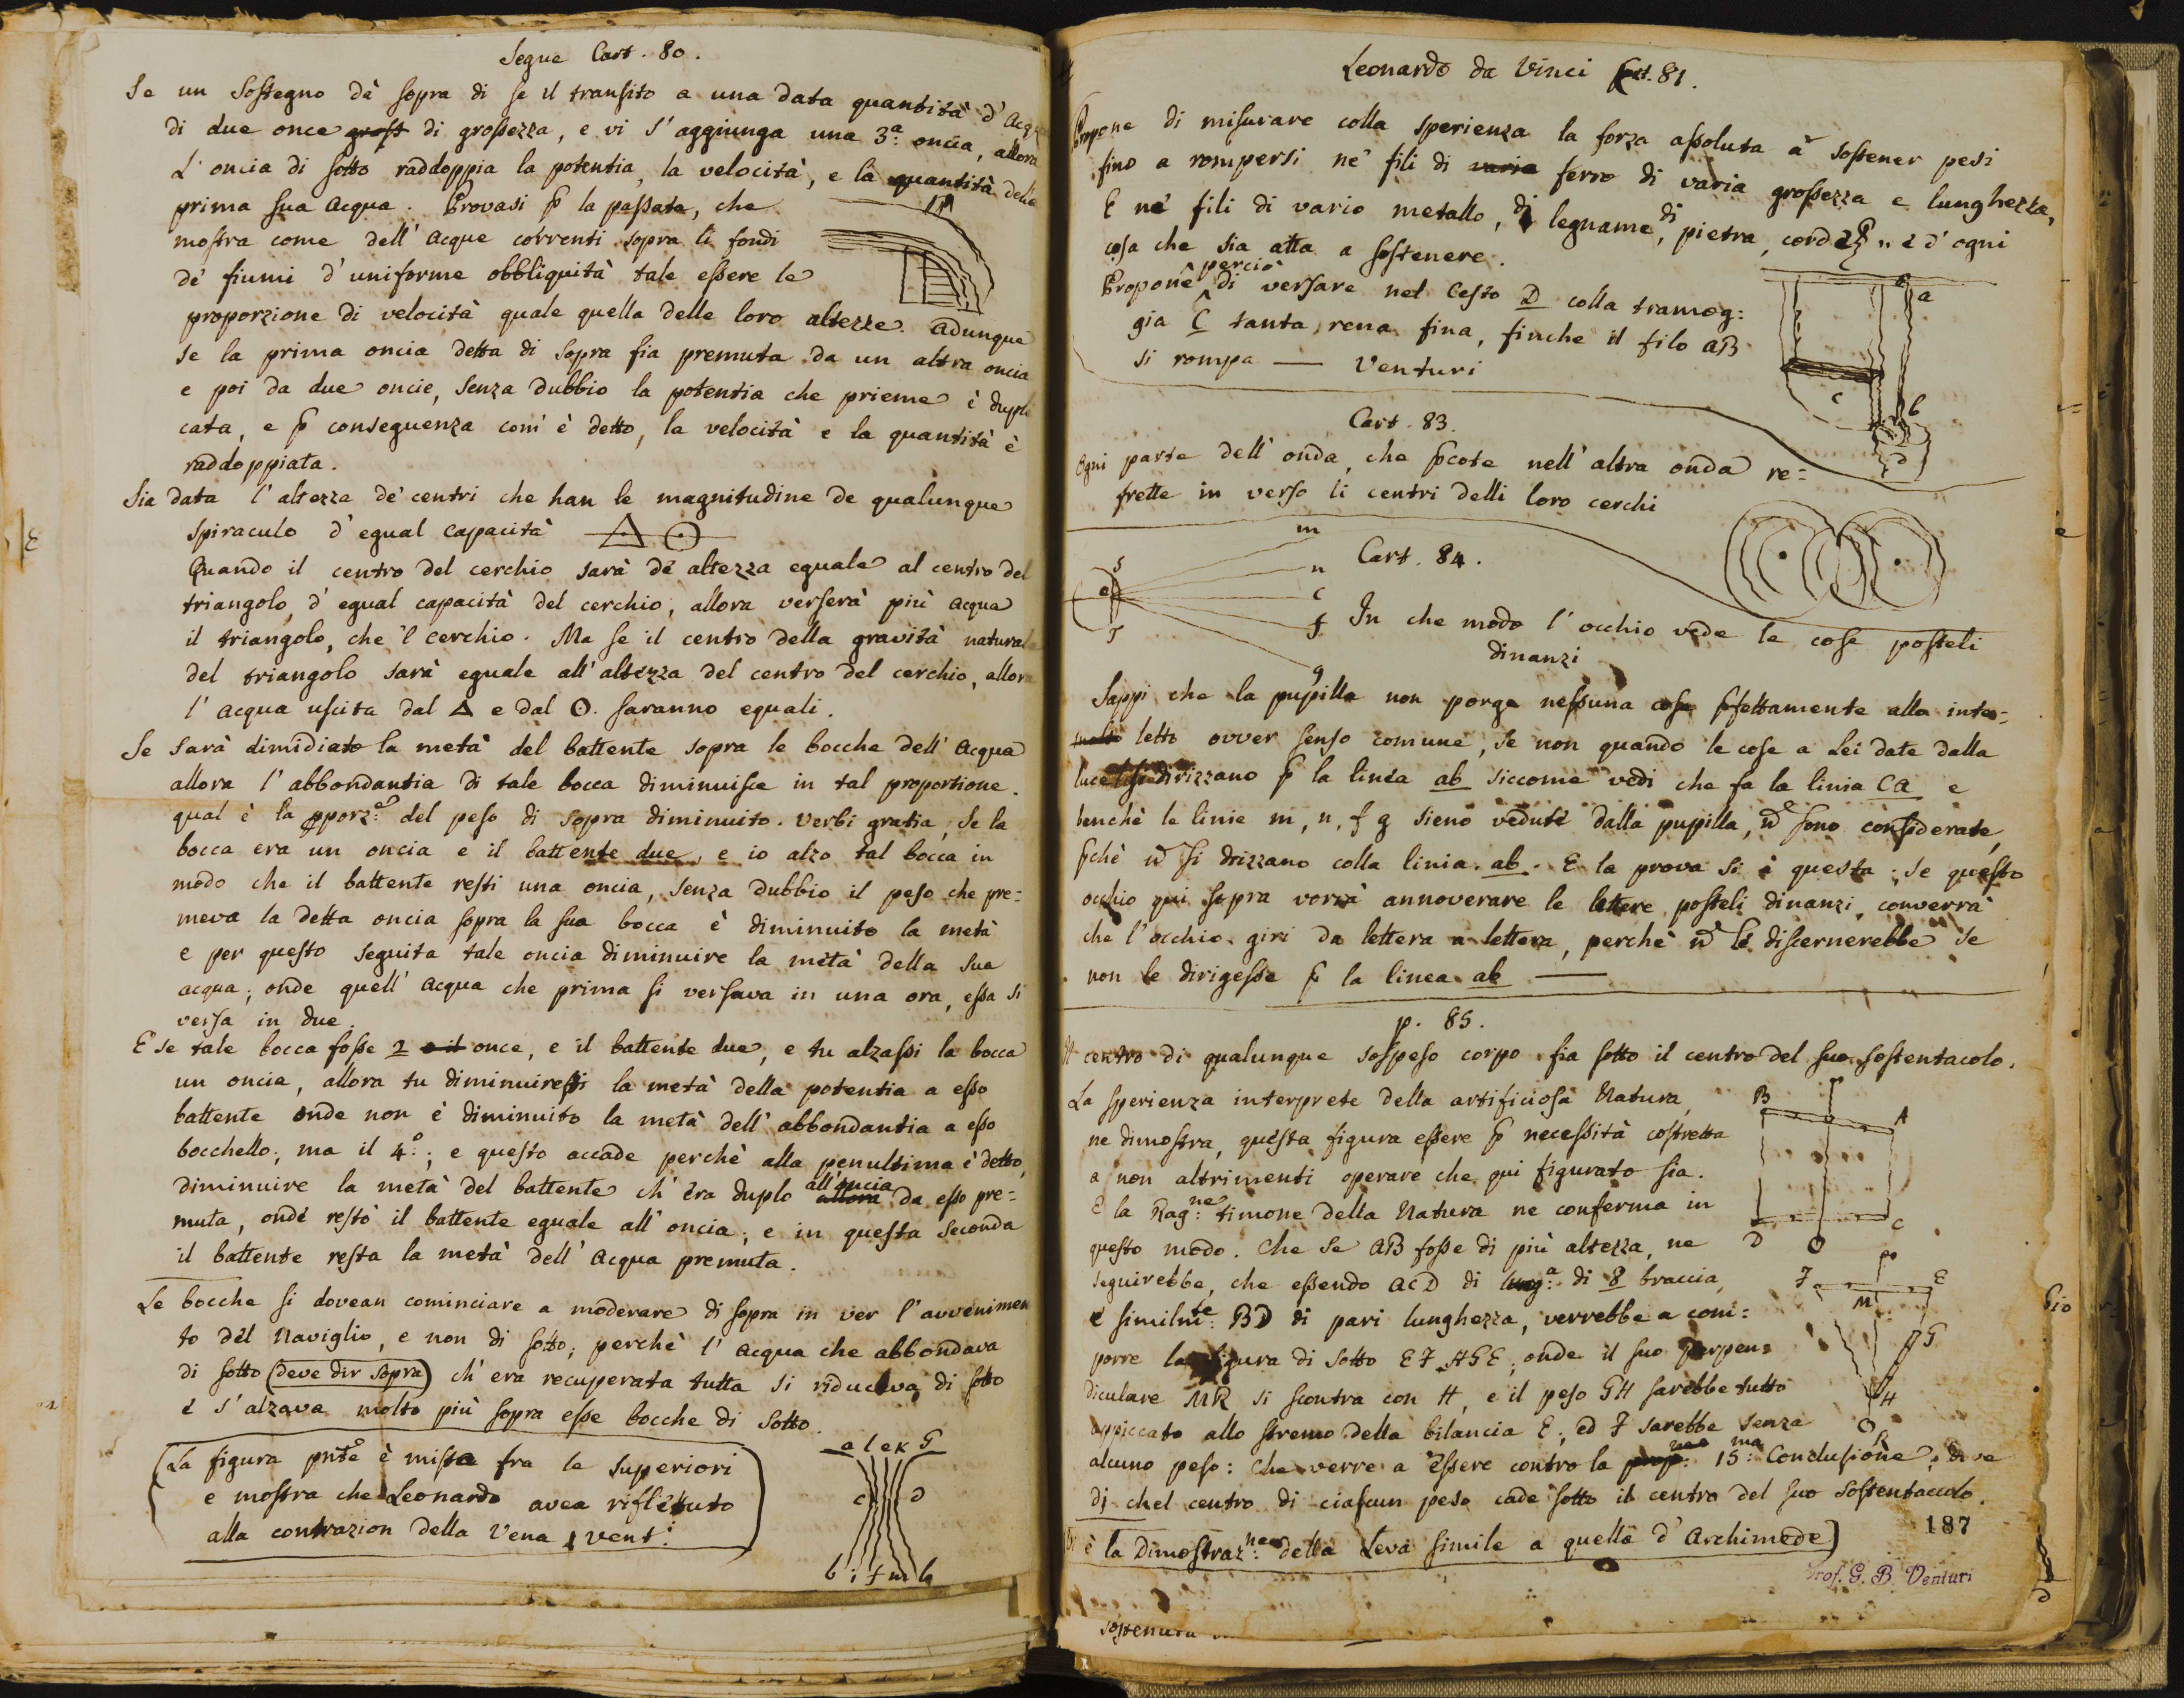 Segue Cart. 80.
Se un Sostegno dà sopra di se il transito a una data quantità d'Acqua
di due once grosse di grossezza, e vi s'aggiunga una 3.a oncia, allora
L'oncia di sotto raddoppia la potentia, la velocità, e la quantità della
prima sua Acqua. Provasi p la passata, che
mostra come dell'Acque correnti sopra li fondi
de' fiumi d'uniforme obbliquità tale essere le
proporzione di velocità quale quella delle loro altezze. Adunque
se la prima oncia detta di sopra fia premuta da un altra oncia
e poi da due oncie, senza dubbio la potentia che prieme è dupli
cata, e p conseguenza com'è detto, la velocità e la quantità è
raddoppiata.
Sia data l'altezza de' centri che han le magnitudine de qualunque
spiraculo d'egual capacità
Quando il centro del cerchio sarà de altezza eguale al centro del
triangolo, d'egual capacità del cerchio, allora verserà più Acqua
il triangolo, che 'l cerchio. Ma se il centro della gravità naturale
del triangolo sarà eguale all'altezza del centro del cerchio, allora
l'acqua uscita dal Δ e dal ⊙. saranno eguali.
Se sarà dimidiato la metà del battente sopra le bocche dell'Acqua
allora l'abbondantia di tale bocca diminuisce in tal proportione.
qual è la pporz.e del peso di sopra diminuito. Verbi gratia, Se la
bocca era un oncia e il battente due, e io alzo tal bocca in
modo che il battente resti una oncia, senza dubbio il peso che pre=
meva la detta oncia sopra la sua bocca è diminuito la metà
e per questo seguita tale oncia diminuire la metà della sua
acqua; onde quell'Acqua che prima si versava in una ora, essa si
versa in due.
E se tale bocca fosse 2 e il once, e il battente due, e tu alzassi la bocca
un oncia, allora tu diminuiresti la metà della potentia a esso
battente onde non è diminuito la metà dell'abbondantia a esso
bocchello; ma il 4.o; e questo accade perchè alla penultima è detto,
diminuire la metà del battente ch'era duplo allora all'oncia da esso pre=
muta, onde restò il battente eguale all'oncia; e in questa seconda
il battente resta la metà dell'Acqua premuta.
Le bocche si dovean cominciare a moderare di sopra in ver l'avvenimen
to del Naviglio, e non di sotto; perchè l'acqua che abbondava
di sotto (deve dir sopra) ch'era recuperata tutta si riduceva di sotto
e s'alzava molto più sopra esse bocche di sotto.
(La figura pnte è mista fra le superiori
e mostra che Leonardo avea riflettuto
alla contrazion della Vena Vent.i)
a l e K G
c D
b i f m h
Leonardo da Vinci Cart. 81.
Propone di misurare colla sperienza la forza assoluta a sostener pesi
fino a rompersi ne' fili di varia ferro di varia grossezza e lunghezza,
E ne' fili di vario metallo, di legname, di pietra, corde, e d'ogni
cosa che sia atta a sostenere.
Propone perciò di versare nel cesto D colla tramog:
gia C tanta rena fina, finche il filo aB
si rompa — Venturi
a
c
b
D
Cart. 83.
Ogni parte dell'onda, che pcote nell'altra onda re=
frette in verso li centri delli loro cerchi
Cart. 84.
m
n
c
f
g
In che modo l'occhio vede le cose posteli
dinanzi
Sappi che la pupilla non porge nessuna cosa pfettamente alla inte=
letto ovver senso comune, se non quando le cose a Lei date dalla
luce si dirizzano p la linea ab siccome vedi che fa la linia Ca e
benchè le linie m, n, f g sieno vedute dalla pupilla, sono considerate,
pchè si drizzano colla linia ab. E la prova si è questa; Se questo
occhio qui sopra vorrà annoverare le lettere posteli dinanzi, converrà
che l'occhio giri da lettera a lettera, perchè le discernerebbe se
non le dirigesse p la linea ab —
p. 85.
Il centro di qualunque sospeso corpo fia sotto il centro del suo sostentacolo.
La sperienza interprete della artificiosa Natura,
ne dimostra, questa figura essere p necessità costretta
a non altrimenti operare che qui figurato sia.
E la Rag.ne timone della Natura ne conferma in
questo modo. Che se AB fosse di più altezza, ne
seguirebbe, che essendo ACD di lung.a di 8 braccia,
e similm.te BD di pari lunghezza, verrebbe a com:
porre la figura di sotto EFHGE, onde il suo perpen=
diculare MR si scontra con H, e il peso GH sarebbe tutto
appiccato allo stremo della bilancia E, ed F sarebbe senza
alcuno peso: Che verre a essere contro la 15.ma Conclusione, dove
di chel centro di ciascun peso cade sotto il centro del suo sostentaculo.
è la Dimostraz.ne della Leva simile a quella d'Archimede)
B
A
D
C
F
E
M
G
H
R
187
Prof. G. B. Venturi
sostenuta